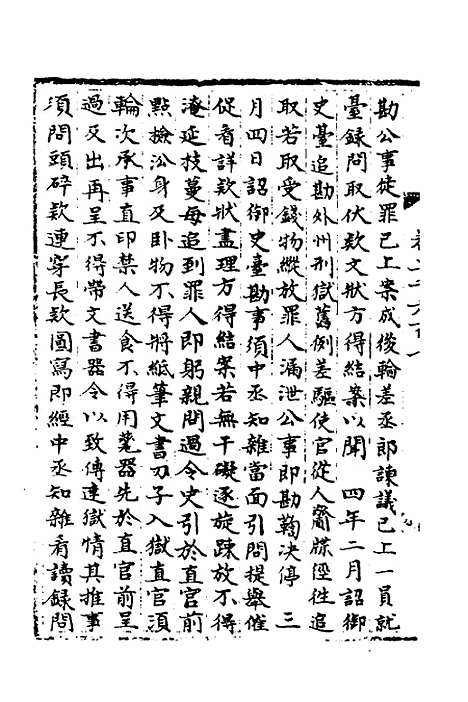 勘公事徒罪已上案成後輪差丞郎諫議已上一員就
臺録問取伏欵文狀方得結案以聞　四年二月詔御
史臺追勘外州刑獄舊例差驅使官從人齎牒徑往追
取若取受錢物縱放罪人漏泄公事即勘鞫决停　三
月四日詔御史臺勘事須中丞知雜當面引問提舉催
促看詳欵狀盡理方得結案若無干礙逐旋踈放不得
淹延枝蔓每追到罪人即躬親問過令史引於直官前
點撿沿身及卧物不得將紙筆文書刀子入獄直官須
輪次承事直印禁人送食不得用甆器先於直官前呈
過及出再呈不得帶文書器令以致傳達獄情其推事
須問頭碎欵連穿長欵圓寫即經中丞知雜看讀録問